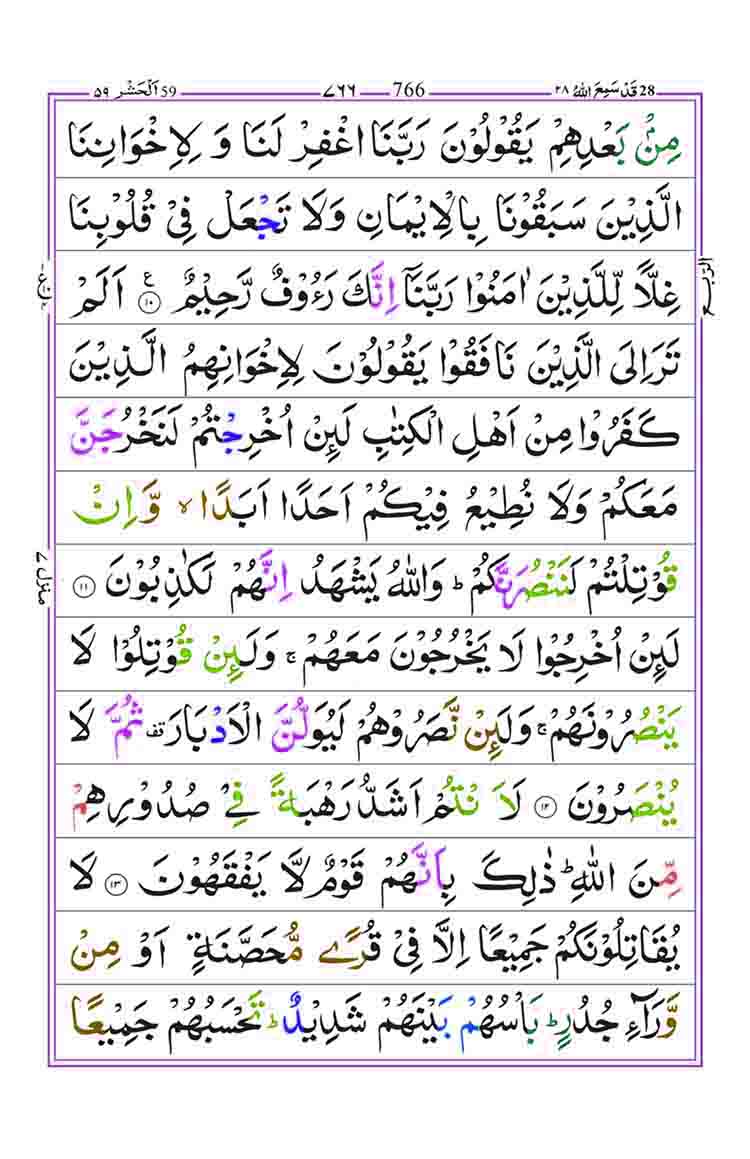 28 قَدْ سَمِعَ اللهُ ۲۸ 766 ۷۶۶ 59 اَلْحَشْر ۵۹
مِنْۢ بَعْدِهِمْ يَقُوْلُوْنَ رَبَّنَا اغْفِرْ لَنَا وَ لِاِخْوَانِنَا
الَّذِيْنَ سَبَقُوْنَا بِالْاِيْمَانِ وَلَا تَجْعَلْ فِيْ قُلُوْبِنَا
غِلًّا لِّلَّذِيْنَ اٰمَنُوْا رَبَّنَاۤ اِنَّكَ رَءُوْفٌ رَّحِيْمٌ ۝۱۰ ع اَلَمْ
تَرَ اِلَى الَّذِيْنَ نَافَقُوْا يَقُوْلُوْنَ لِاِخْوَانِهِمُ الَّذِيْنَ
كَفَرُوْا مِنْ اَهْلِ الْكِتٰبِ لَىِٕنْ اُخْرِجْتُمْ لَنَخْرُجَنَّ
مَعَكُمْ وَلَا نُطِيْعُ فِيْكُمْ اَحَدًا اَبَدًا ۙ وَّاِنْ
قُوْتِلْتُمْ لَنَنْصُرَنَّكُمْ ؕ وَاللهُ يَشْهَدُ اِنَّهُمْ لَكٰذِبُوْنَ ۝۱۱
لَىِٕنْ اُخْرِجُوْا لَا يَخْرُجُوْنَ مَعَهُمْ ۚ وَلَىِٕنْ قُوْتِلُوْا لَا
يَنْصُرُوْنَهُمْ ۚ وَلَىِٕنْ نَّصَرُوْهُمْ لَيُوَلُّنَّ الْاَدْبَارَ قف ثُمَّ لَا
يُنْصَرُوْنَ ۝۱۲ لَاَ نْتُمْ اَشَدُّ رَهْبَةً فِيْ صُدُوْرِهِمْ
مِّنَ اللهِ ؕ ذٰلِكَ بِاَنَّهُمْ قَوْمٌ لَّا يَفْقَهُوْنَ ۝۱۳ لَا
يُقَاتِلُوْنَكُمْ جَمِيْعًا اِلَّا فِيْ قُرًى مُّحَصَّنَةٍ اَوْ مِنْ
وَّرَآءِ جُدُرٍ ؕ بَاْسُهُمْ بَيْنَهُمْ شَدِيْدٌ ؕ تَحْسَبُهُمْ جَمِيْعًا
الرّبع
منزل ۷